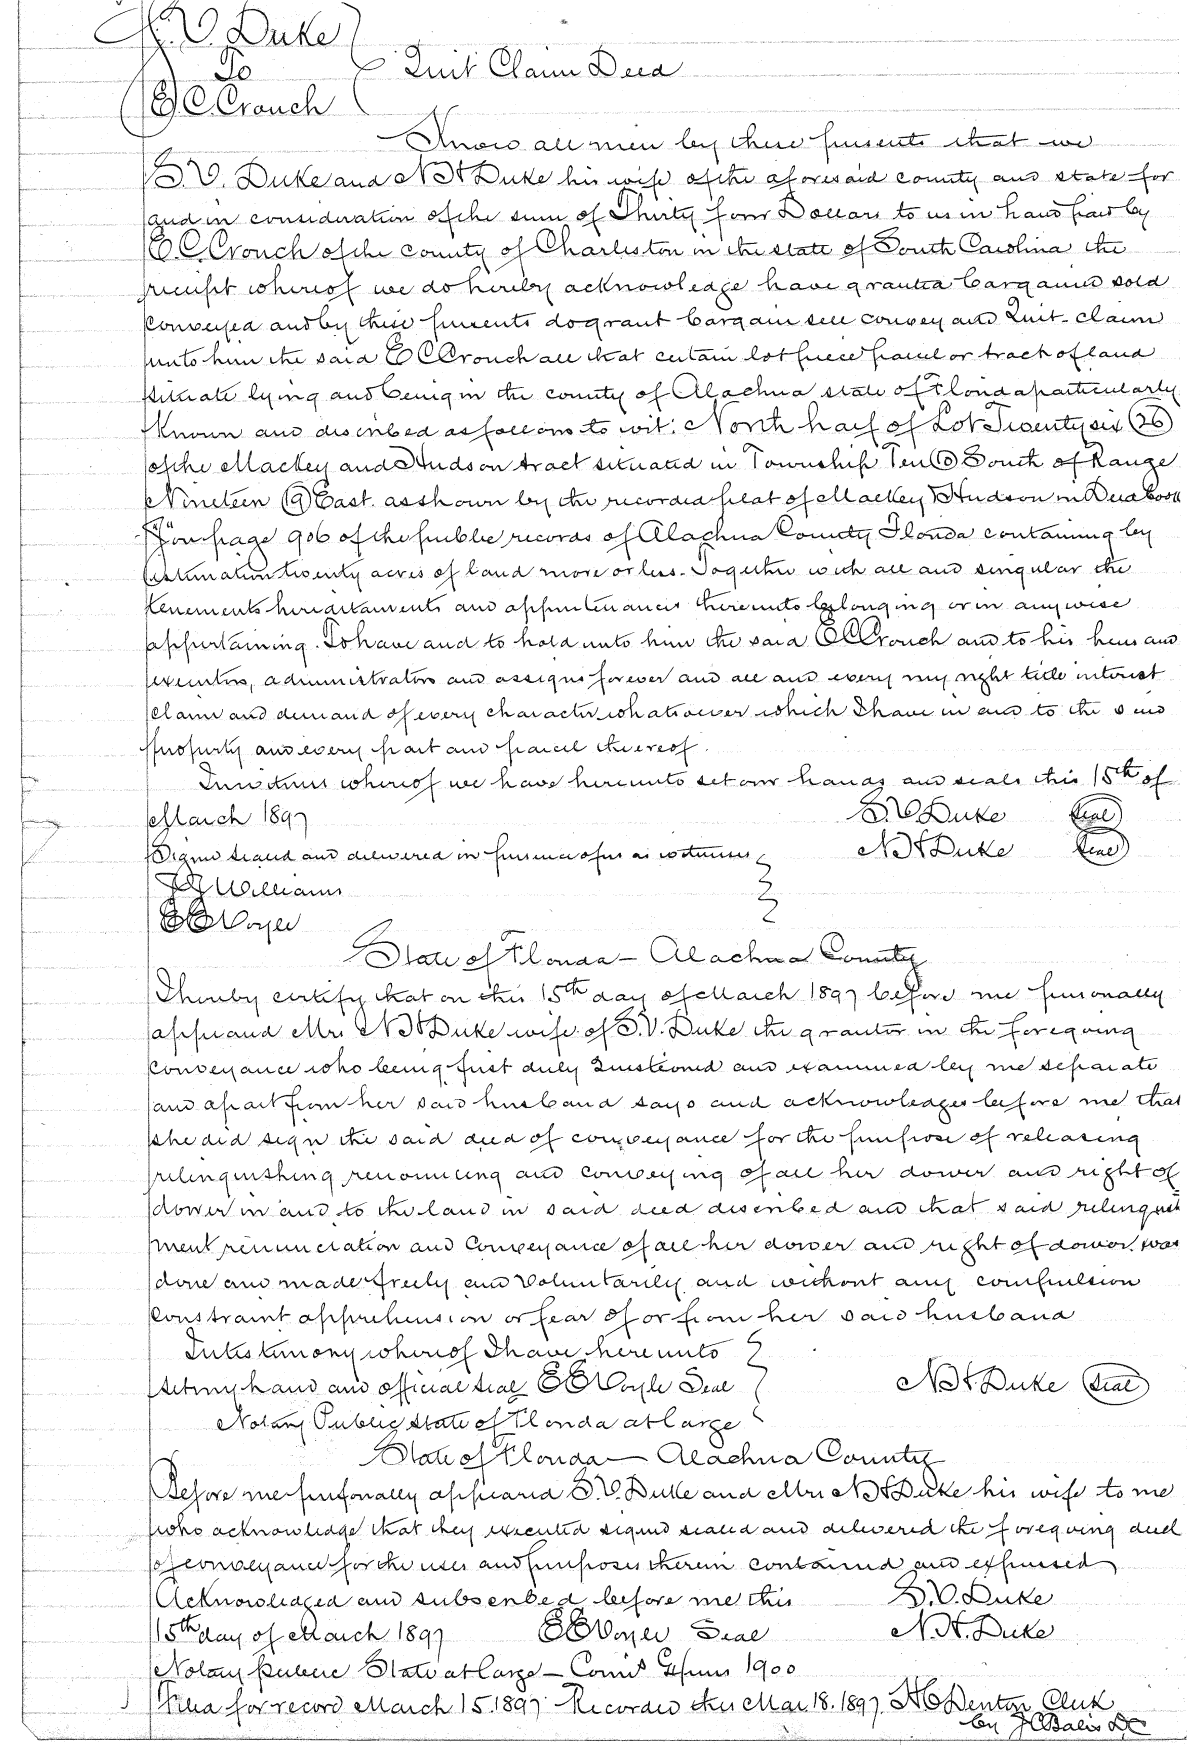 S. V. Duke
To Quit Claim Deed
E. C. Crouch
Know all men by these presents that we
S. V. Duke and N H Duke his wife of the aforesaid county and state for
and in consideration of the sum of Thirty four Dollars to us in hand paid by
E. C. Crouch of the county of Charleston in the state of South Carolina the
receipt whereof we do hereby acknowledge have granted bargained sold
conveyed and by these presents do grant bargain sell convey and Quit-claim
unto him the said E C Crouch all that certain lot piece parcel or tract of land
situate lying and being in the county of Alachua state of Florida particularly
Known and described as follows to wit: North half of Lot Twenty six (26)
of the Mackey and Hudson tract situated in Township Ten (10) South of Range
Nineteen (19) East. as shown by the recorded plat of Mackey & Hudson in Deed book
on page 906 of the public records of Alachua County Florida containing by
estimation twenty acres of land more or less. Together with all and singular the
tenements hereditaments and appurtenances thereunto belonging or in anywise
appertaining. To have and to hold unto him the said E C Crouch and to his heirs and
executors, administrators and assigns forever and all and every my right title interest
claim and demand of every character whatsoever which I have in and to the said
property and every part and parcel thereof.
In witness whereof we have hereunto set our hands and seals this 15th of
March 1897 S. V Duke Seal
Signed sealed and delivered in presence of us as witnesses N H Duke Seal
Williams
E E Voyle
State of Florida - Alachua County
I hereby certify that on this 15th day of March 1897 before me personally
appeared Mrs N H Duke wife of S. V. Duke the grantor in the foregoing
conveyance who being first duly Questioned and examined by me separate
and apart from her said husband says and acknowledges before me that
she did sign the said deed of conveyance for the purpose of releasing
relinquishing renouncing and conveying of all her dower and right of
dower in and to the land in said deed described and that said relinquish
ment renunciation and Conveyance of all her dower and right of dower was
done and made freely and Voluntarily and without any compulsion
Constraint apprehension or fear of or from her said husband
In testimony whereof I have hereunto
set my hand and official seal E E Voyle Seal N H Duke Seal
Notary Public State of Florida at large
State of Florida - Alachua County
Before me personally appeared S. V. Duke and Mrs N H Duke his wife to me
who acknowledge that they executed signed sealed and delivered the foregoing deed
of conveyance for the uses and purposes therein contained and expressed
Acknowledged and subscribed before me this S. V. Duke
15th day of March 1897 E E Voyle Seal N. H. Duke
Notary Public State at large - Comis Expires 1900
Filed for record March 15. 1897 Recorded this Mar 18. 1897 H C Denton Clerk
by J C DC